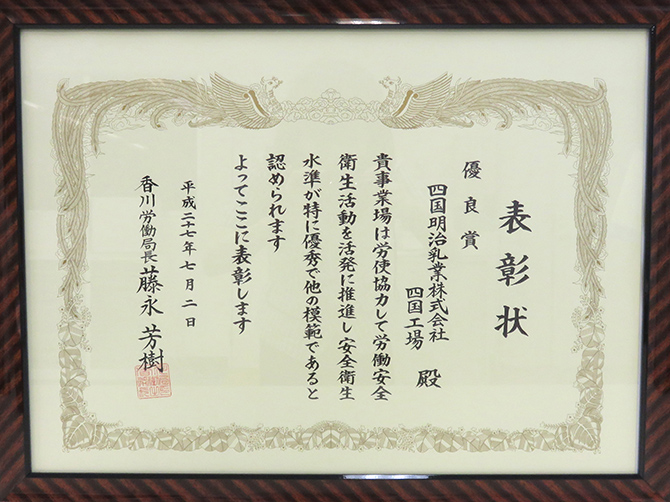 表彰状
優良賞
四国明治乳業株式会社
四国工場 殿
貴事業場は労使協力して労働安全
衛生活動を活発に推進し安全衛生
水準が特に優秀で他の模範であると
認められます
よってここに表彰します
平成二十七年七月二日
香川労働局長 藤永芳樹